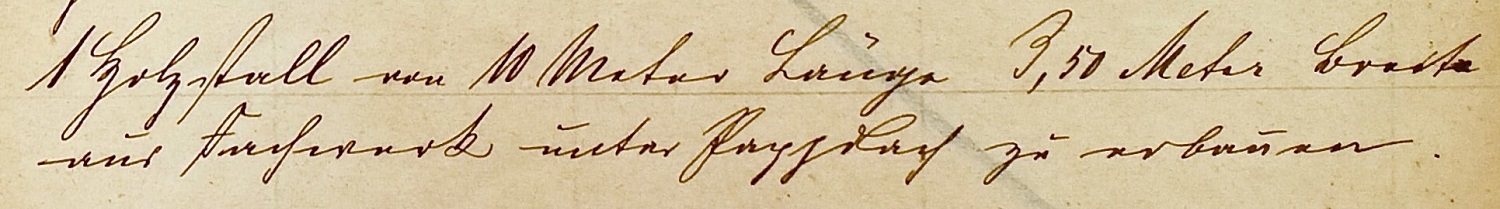 1 Holzstall von 10 Meter Länge 3,50 Meter Breite
aus Fachwerk unter Pappdach zu erbauen.